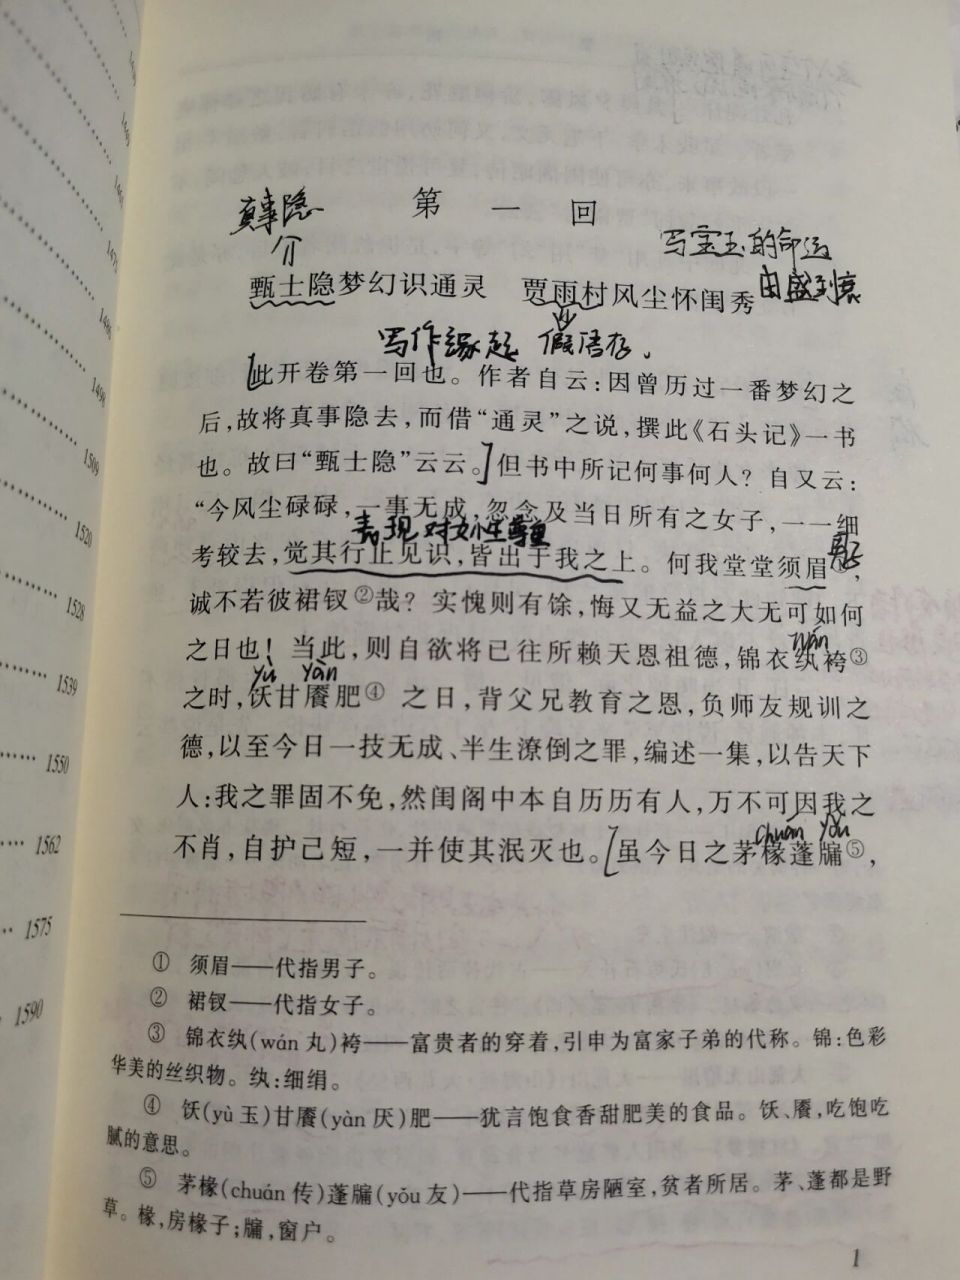 真事隐
第一回
写宝玉的命运
由盛到衰
甄士隐梦幻识通灵 贾雨村风尘怀闺秀
写作缘起 假语存。
此开卷第一回也。作者自云:因曾历过一番梦幻之
后,故将真事隐去,而借“通灵”之说,撰此《石头记》一书
也。故曰“甄士隐”云云。但书中所记何事何人?自又云:
“今风尘碌碌,一事无成,忽念及当日所有之女子,一一细
表现对女性尊重
考较去,觉其行止见识,皆出于我之上。何我堂堂须眉①,
诚不若彼裙钗②哉?实愧则有馀,悔又无益之大无可如何
之日也!当此,则自欲将已往所赖天恩祖德,锦衣纨袴③
wán
yù yàn
之时,饫甘餍肥④之日,背父兄教育之恩,负师友规训之
德,以至今日一技无成、半生潦倒之罪,编述一集,以告天下
人:我之罪固不免,然闺阁中本自历历有人,万不可因我之
chuán yǒu
不肖,自护己短,一并使其泯灭也。虽今日之茅椽蓬牖⑤,
① 须眉——代指男子。
② 裙钗——代指女子。
③ 锦衣纨(wán丸)袴——富贵者的穿着,引申为富家子弟的代称。锦:色彩
华美的丝织物。纨:细绢。
④ 饫(yù玉)甘餍(yàn厌)肥——犹言饱食香甜肥美的食品。饫、餍,吃饱吃
腻的意思。
⑤ 茅椽(chuán传)蓬牖(yǒu友)——代指草房陋室,贫者所居。茅、蓬都是野
草。椽,房椽子;牖,窗户。
1
1520
1528
1539
1550
1562
1575
1590